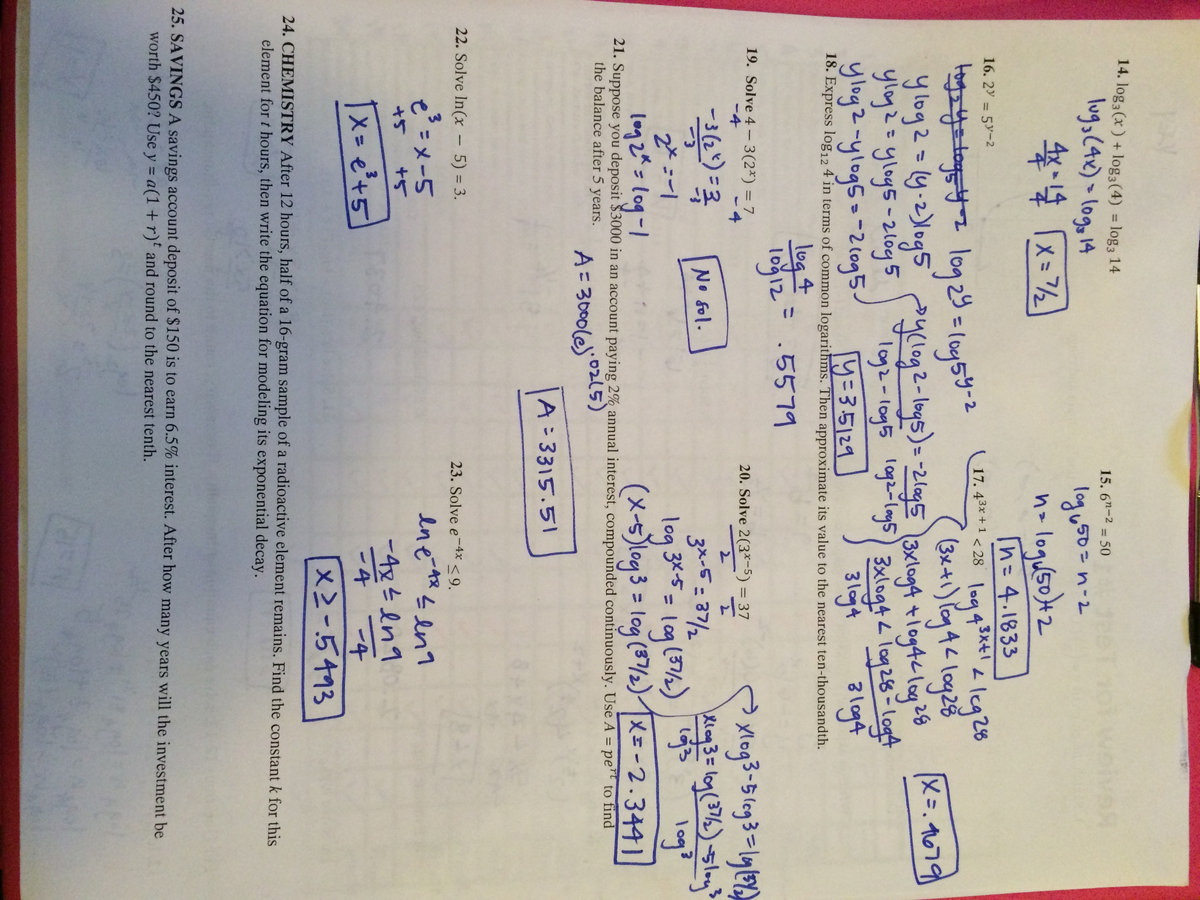 14. log₃(x) + log₃(4) = log₃ 14
log₃(4x) = log₃ 14
4x = 14
4 4
x = 7/2
15. 6ⁿ⁻² = 50
log₆50 = n-2
n = log₆(50)+2
n = 4.1833
16. 2ʸ = 5ʸ⁻²
log 2ʸ = log 5ʸ⁻²
y log 2 = (y-2)log 5
y log 2 = y log 5 - 2 log 5
y log 2 - y log 5 = -2 log 5
y(log 2 - log 5) = -2 log 5
log 2 - log 5 log 2 - log 5
y = 3.5129
17. 4³ˣ⁺¹ < 28
log 4³ˣ⁺¹ < log 28
(3x+1) log 4 < log 28
3x log 4 + log 4 < log 28
3x log 4 < log 28 - log 4
3 log 4 3 log 4
x = .4679
18. Express log₁₂ 4 in terms of common logarithms. Then approximate its value to the nearest ten-thousandth.
log 4
log 12 = .5579
19. Solve 4 – 3(2ˣ) = 7
-4 -4
-3(2ˣ) = 3
-3 -3
2ˣ = -1
log 2ˣ = log -1
No sol.
20. Solve 2(3ˣ⁻⁵) = 37
2 2
3ˣ⁻⁵ = 37/2
log 3ˣ⁻⁵ = log (37/2)
(x-5) log 3 = log (37/2)
x log 3 - 5 log 3 = log (37/2)
x log 3 = log (37/2) - 5 log 3
log 3 log 3
x = -2.3441
21. Suppose you deposit $3000 in an account paying 2% annual interest, compounded continuously. Use A = peʳᵗ to find
the balance after 5 years.
A = 3000(e)^.02(5)
A = 3315.51
22. Solve ln(x – 5) = 3.
e³ = x - 5
+5 +5
x = e³ + 5
23. Solve e⁻⁴ˣ ≤ 9.
ln e⁻⁴ˣ ≤ ln 9
-4x ≤ ln 9
-4 -4
x ≥ -.5493
24. CHEMISTRY After 12 hours, half of a 16-gram sample of a radioactive element remains. Find the constant k for this
element for t hours, then write the equation for modeling its exponential decay.
25. SAVINGS A savings account deposit of $150 is to earn 6.5% interest. After how many years will the investment be
worth $450? Use y = a(1 + r)ᵗ and round to the nearest tenth.